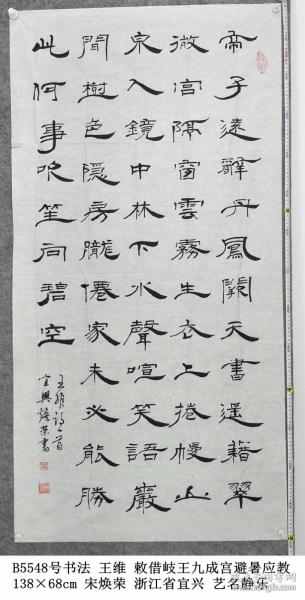 帝子遠辭丹鳳闕天書遥藉翠
微宫隔窗雲霧生衣上捲幔山
泉入鏡中林下水聲喧笑語巖
間樹色隱房朧僊家未必能勝
此何事吹笙向碧空
王維詩一首
宜興煥榮書
B5548号书法 王维 敕借岐王九成宫避暑应教
138×68cm 宋焕荣 浙江省宜兴 艺名静乐